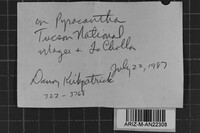 on Pyracantha
Tucson National
Mages & La Cholla
July 22, 1987
Danny Kirkpatrick
722 - 3768
ARIZ-M-AN22308